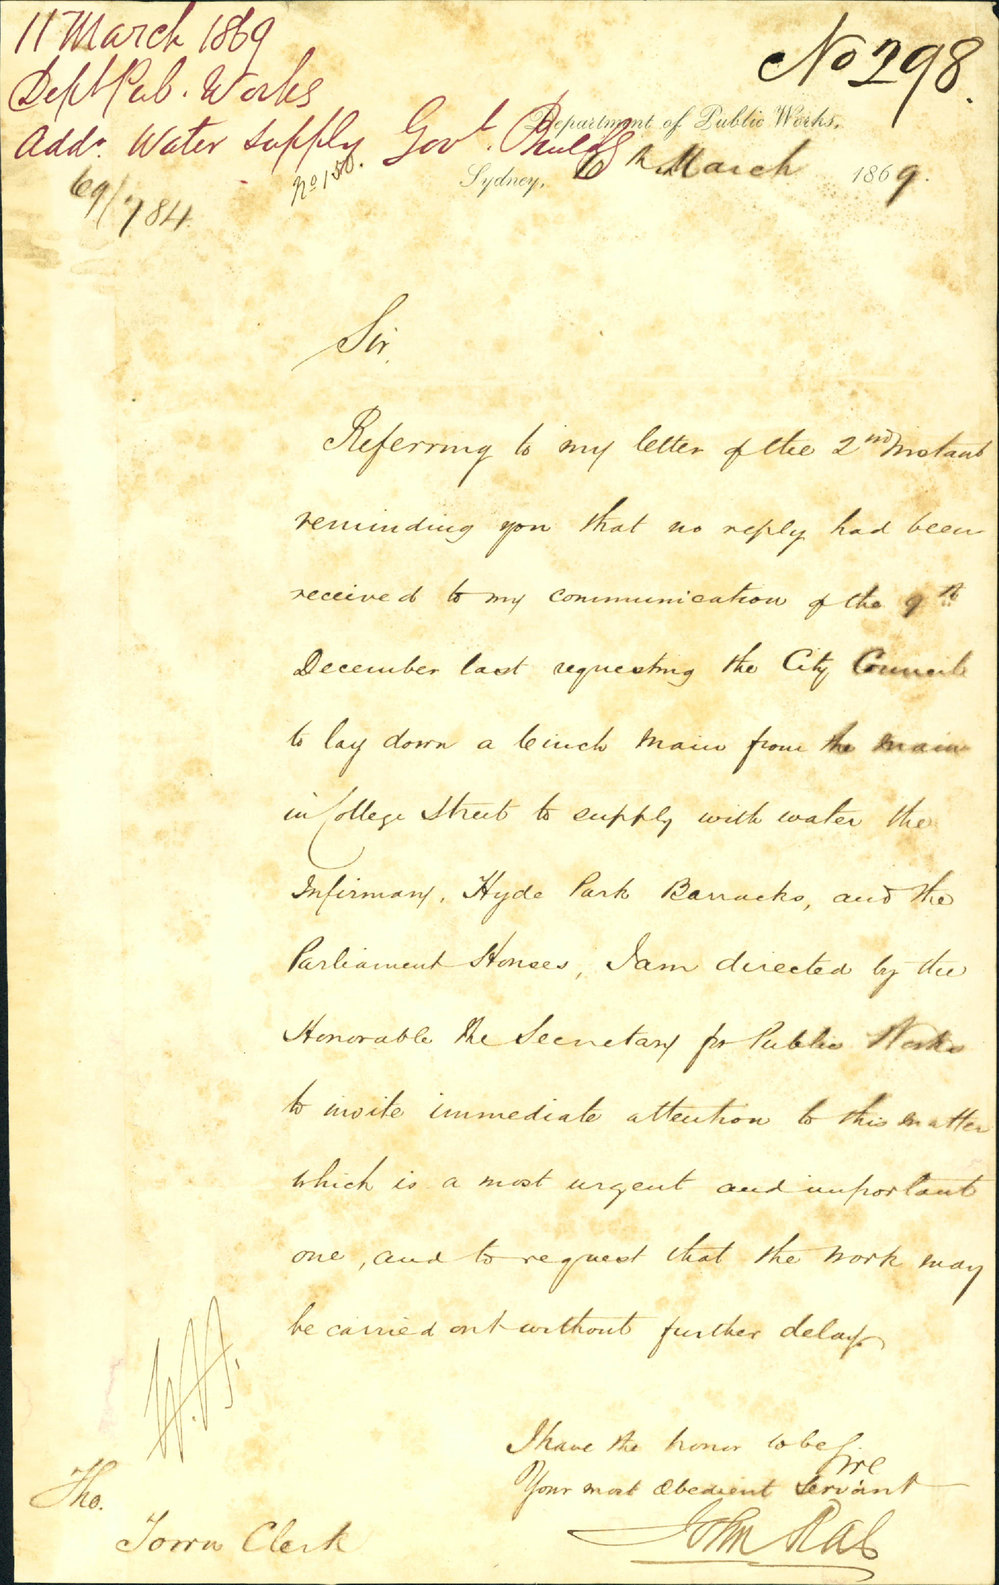 11 March 1869
No 298.
Dept Pub. Works
Addl. Water supply Govt. Builds
Department of Public Works,
No 150.
Sydney, 6th March 1869.
69/784
Sir,
Referring to my letter of the 2nd Instant
reminding you that no reply had been
received to my communication of the 9th
December last requesting the City Council
to lay down a 6 inch main from the main
in College Street to supply with water the
Infirmary, Hyde Park Barracks, and the
Parliament Houses, I am directed by the
Honorable the Secretary for Public Works
to invite immediate attention to this matter
which is a most urgent and important
one, and to request that the work may
be carried out without further delay
I have the honor to be
Sire
Your most Obedient Servant
John Rae
The
Town Clerk